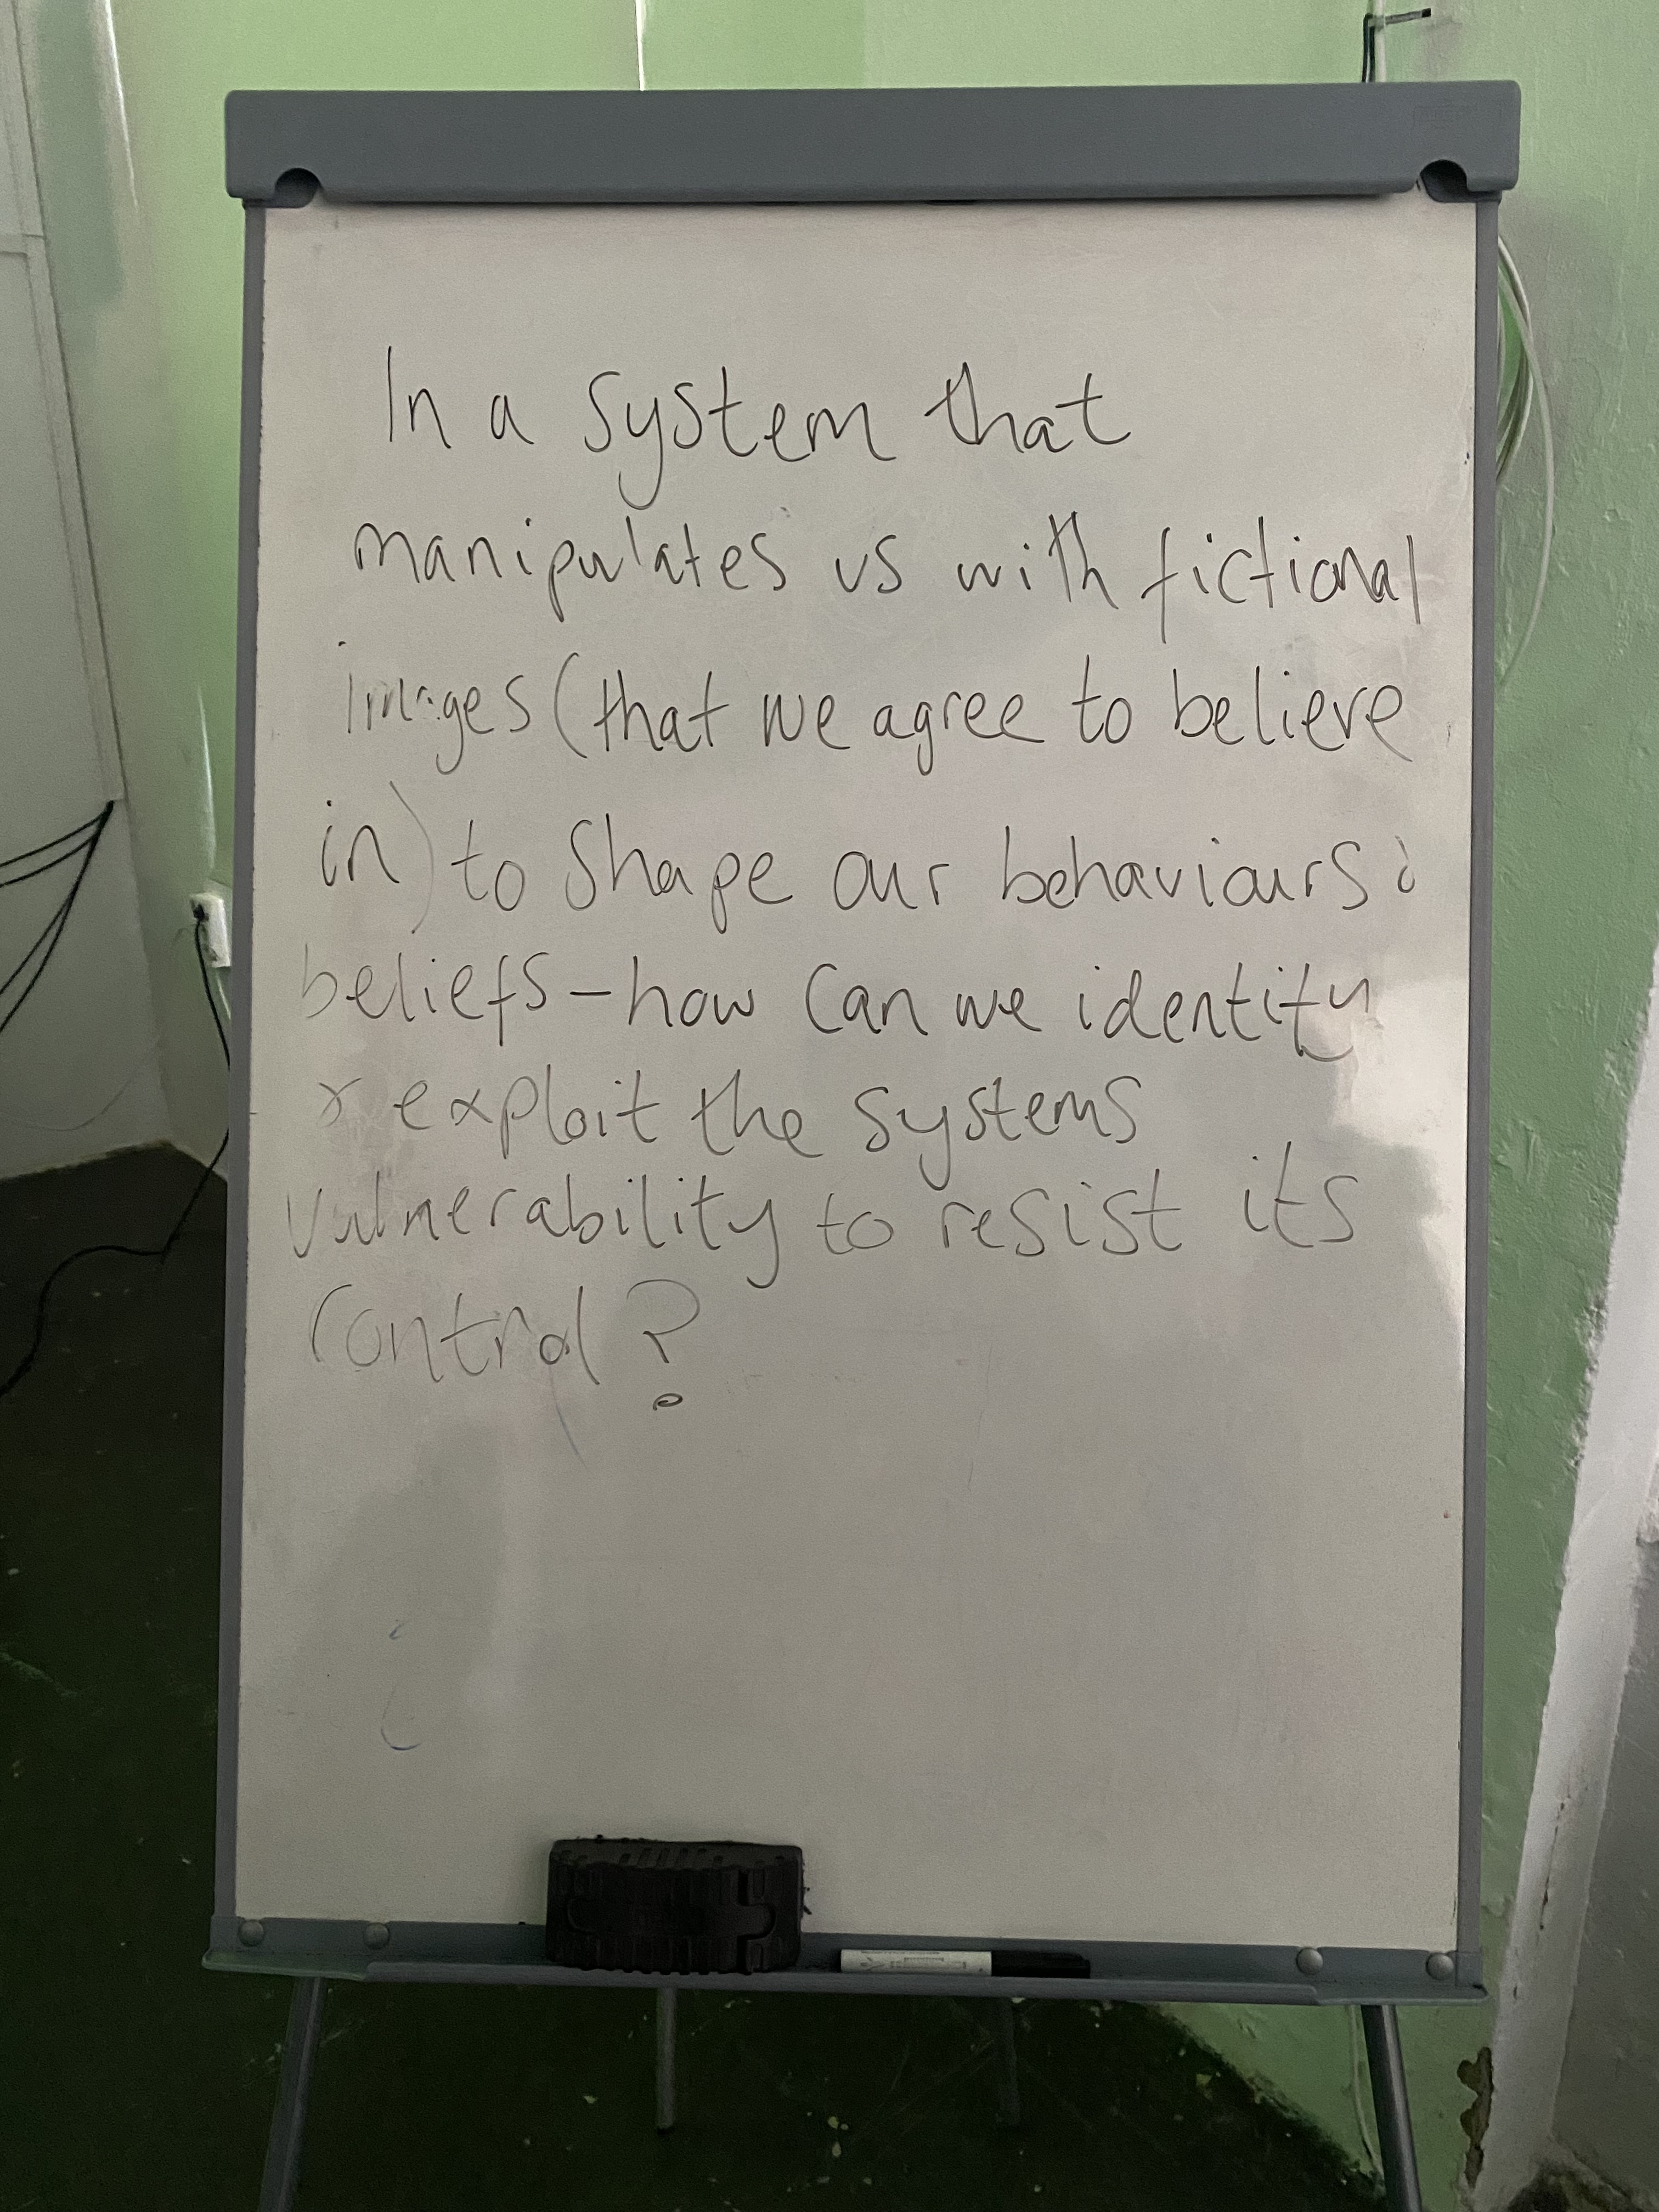 In a system that
manipulates us with fictional
images (that we agree to believe
in) to shape our behaviours &
beliefs - how can we identify
& exploit the systems
vulnerability to resist its
control?